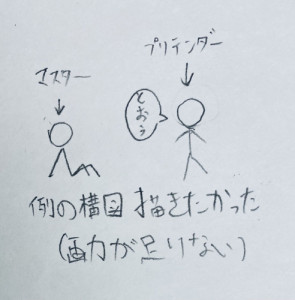 プリテンダー
マスター
とおぅ
例の構図 描きたかった
(画力が足りない)